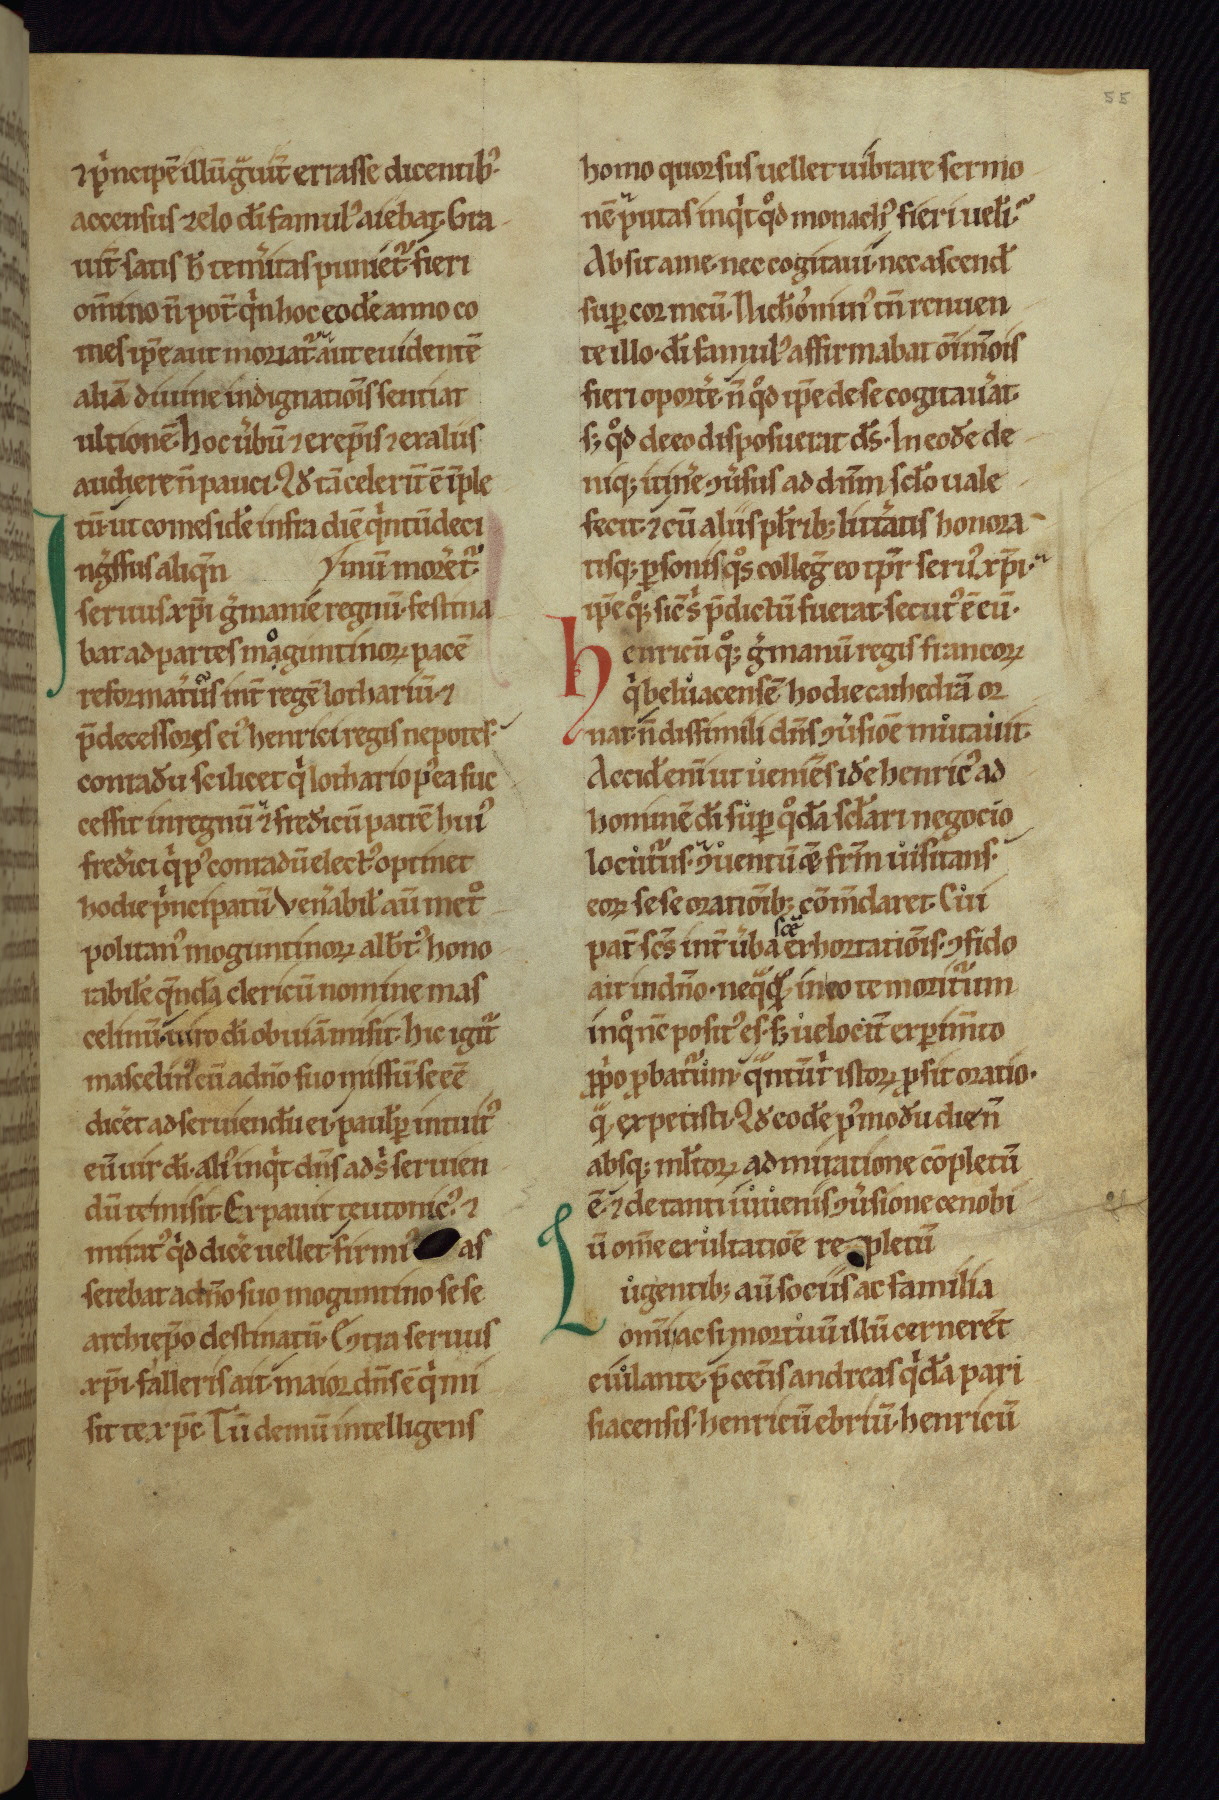 55
⁊ p͛ncipē illū g̃uit̃ errasse dicentib᷒.
accensus zelo dī famul᷒ aiebat. Gra
uit̃ satis h̄ tem̃itas puniet̃. fieri
om̄ino n̄ pot̃ q̇n hoc eodē anno co
mes ip̄e aut moriat̃ aut euidentē
aliā diuine indignatiōis sentiat
ultionē. hoc ūbū ⁊ ex ep̄is ⁊ ex aliis
audiere n̄ pauci. Qd̄ tā celerit̃ ē īple
tū. ut comes idē infra diē q̇ntūdeci
mū moret̃.
Ing̃ssus aliq̄n
seruus xp̄i g̃manie regnū. festina
bat ad partes maguntinoꝝ pacē
reformat̃us int̃ regē lothariū. ⁊
p̄decessores ei᷒ henrici regis nepotes.
conradū scilicet q̇ lothario p᷒ea suc
cessit in regnū ⁊ fredicū patrē hui᷒
fredici q̇ p᷒ conradū elect᷒ optinet
hodie p͛ncipatū. Ven̄abil̄ aū met᷒o
politan᷒ moguntinoꝝ alb̄t᷒ hono
rabilē q̄ndā clericū nomine mas
celinū. uiro dī obuiā misit. hic igit̃
mascelin᷒ cū a dn̄o suo missū se eē
dic̄et ad seruiendū ei. paulꝑ intuit᷒
eū uir dī. ali᷒ inq̇t dn̄s ad s̄ seruien
dū te misit. Expauit teutonic᷒. ⁊
mirat᷒ q̇d dicē uellet. firmi as
serebat a dn̄o suo moguntino sese
archiep̄o destinatū. Cont̃ seruus
xp̄i. falleris ait. maior dn̄s ē q̇ mi
sit te xp̄c. Tū demū intelligens
homo quorsus uellet uibrare sermo
nē. putas inq̇t qd̊ monach᷒ fieri uelī.
Absit a me. nec cogitaui. nec ascend̄
suꝑ cor meū. Nich̄omin᷒ tn̄ renuen
te illo. dī famul᷒ affirmabat oīmōis
fieri oport̃e. n̄ qd̊ ip̄e de se cogitau̾at.
sꝫ qd̊ de eo disposuerat ds̄. In eodē de
niqꝫ itin̄e ꝯu̾sus ad dn̄m. scl̄o uale
fecit. ⁊ cū aliis pl̄ribꝫ litt̃atis honora
tisqꝫ ꝑsonis q̊s colleg̃ eo tp̄r seru᷒ xp̄i.
ip̄e q̊qꝫ sic̄ s̄ p̄dictū fuerat. secut᷒ ē eū.
Henricū q̊qꝫ g̃manū regis francoꝝ
q̇ beluacensē hodie cathedrā or
nat. n̄ dissimili dn̄s ꝯu̾siōe mutauit.
Accid̄ enī ut ueniēs idē henric᷒ ad
hominē dī suꝑ q̊dā scl̄ari negocio
locut̃us. ꝯuentū q̊ꝫ fr̄m uisitans.
eoꝝ sese oratiōibꝫ cōmdaret. Cui
pat̃ sc̄s int̃ ūba scē exhortatiōis. ꝯfido
ait in dn̄o. neq̄q̄ in eo te morit̃um
in q̊ nc̄ posit᷒ es. sꝫ uelocit̃ exꝑimto
ꝓp̄o ꝓbat̃um. q̄ntū t̾ istoꝝ ꝓsit oratio.
q̄ expetisti. Qd̄ eodē p᷒modū die n̄
absqꝫ ml̄toꝝ admiratione cōpletū
ē. ⁊ de tanti iuuenis ꝯu̾sione cenobi
ū om̄e exultatiōe repletū
Lugentibꝫ aū sociis ac familia
om̄i. ac si mortuū illū cernerēt
eiulante. p̄ cet̃is andreas q̇dā pari
siacensis. henricū ebriū. henricū